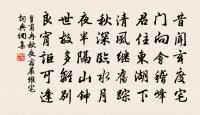 昔聞玄度宅
門向會稽峰
君住東湖下
清風繼舊踪
秋深臨水月
夜半隔山鐘
世故多離別
良宵詎可逢
皇甫冉秋夜宿嚴維宅
詞典網集